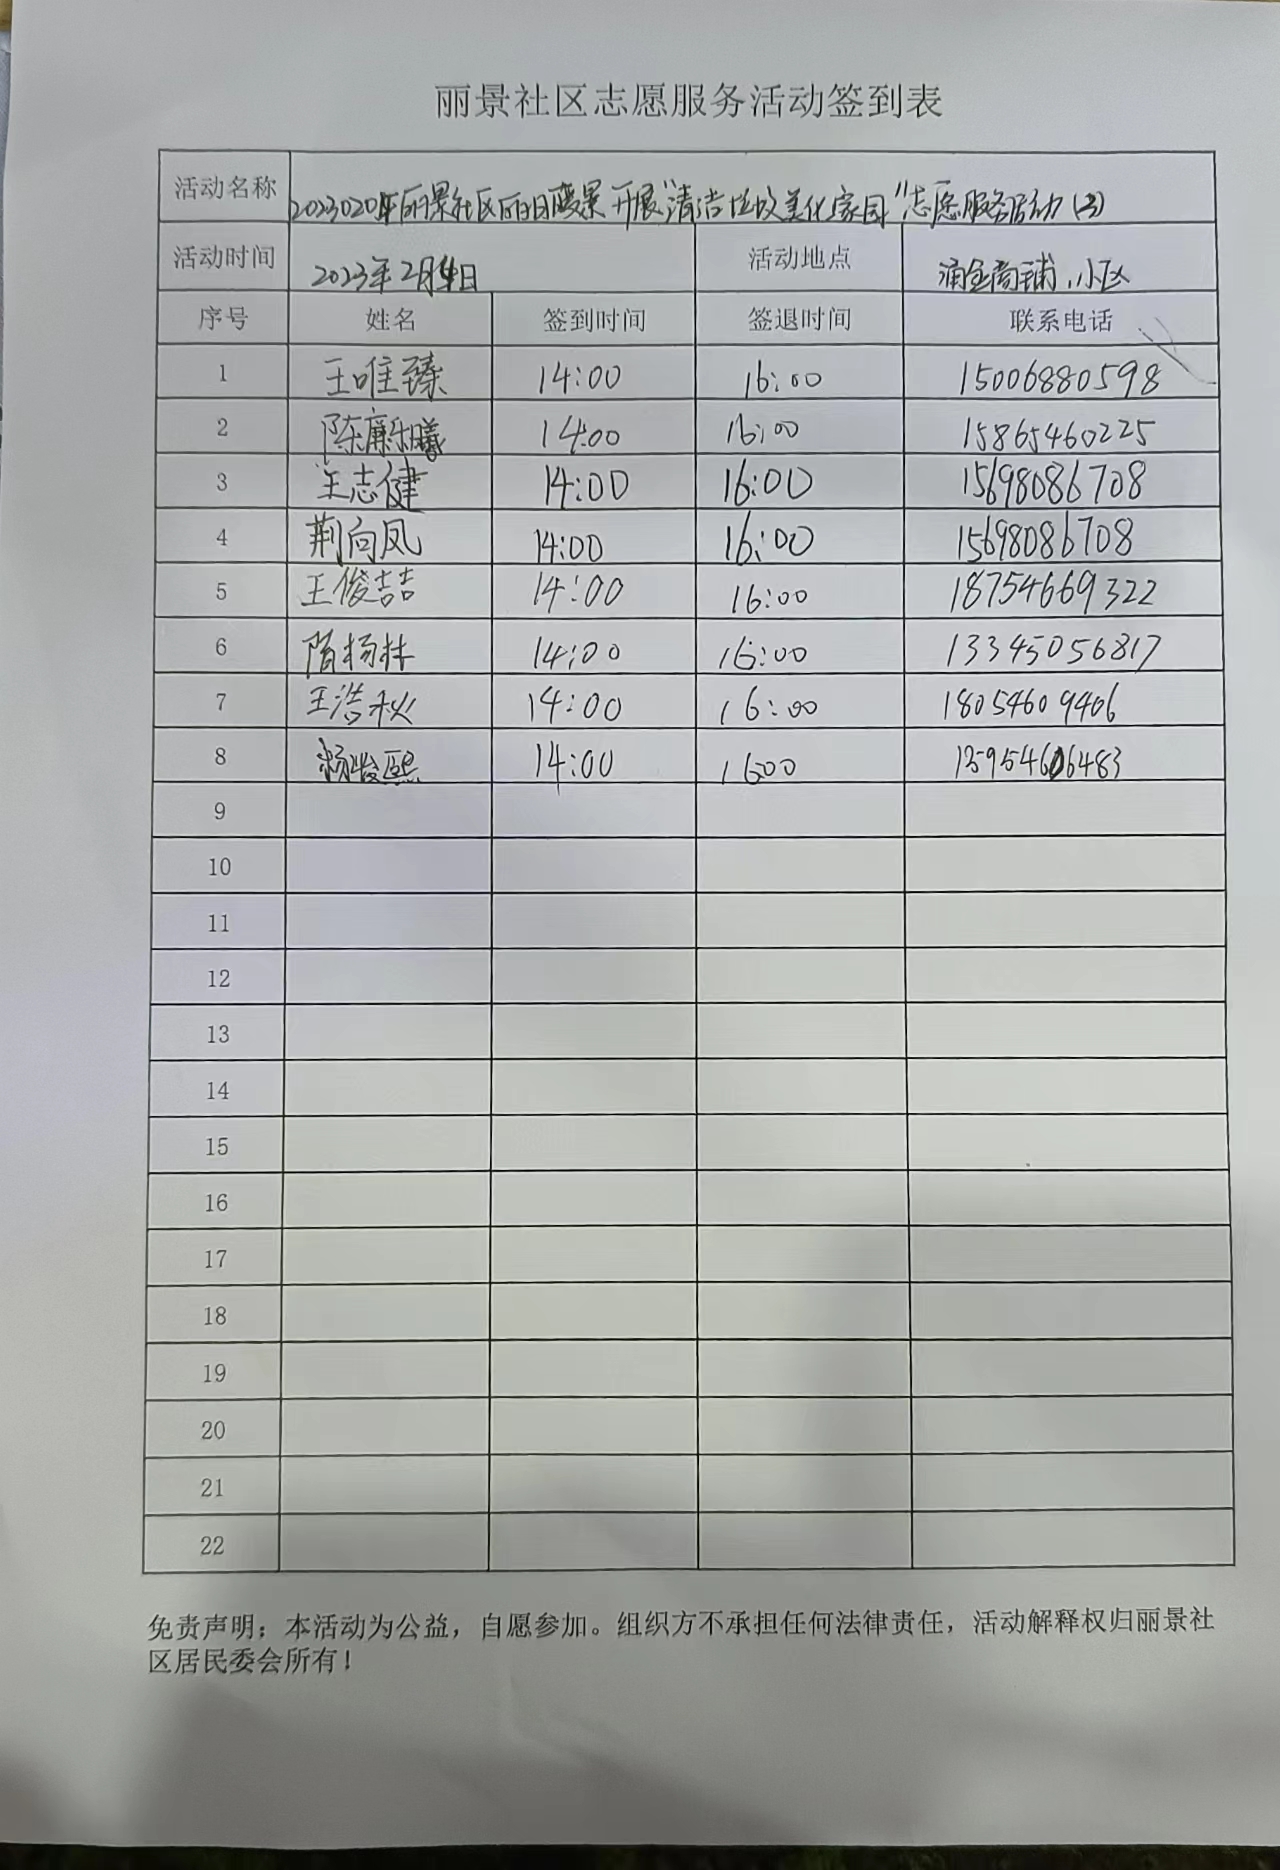 丽景社区志愿服务活动签到表
活动名称 2023020年丽景社区丽日暖景开展"清洁垃圾美化家园"志愿服务活动(3)
活动时间 2023年2月日 活动地点 涌金商铺、小区
序号 姓名 签到时间 签退时间 联系电话
1 王唯臻 14:00 16:00 15006880598
2 陈廉乐曦 14:00 16:00 15865460225
3 王志健 14:00 16:00 15698086708
4 荆向凤 14:00 16:00 15698086708
5 王俊喆 14:00 16:00 18754669322
6 隋杨林 14:00 16:00 13345056817
7 王浩秋 14:00 16:00 18054609406
8 杨峻熙 14:00 1600 135954606483
9
10
11
12
13
14
15
16
17
18
19
20
21
22
免责声明；本活动为公益，自愿参加。组织方不承担任何法律责任，活动解释权归丽景社
区居民委会所有！